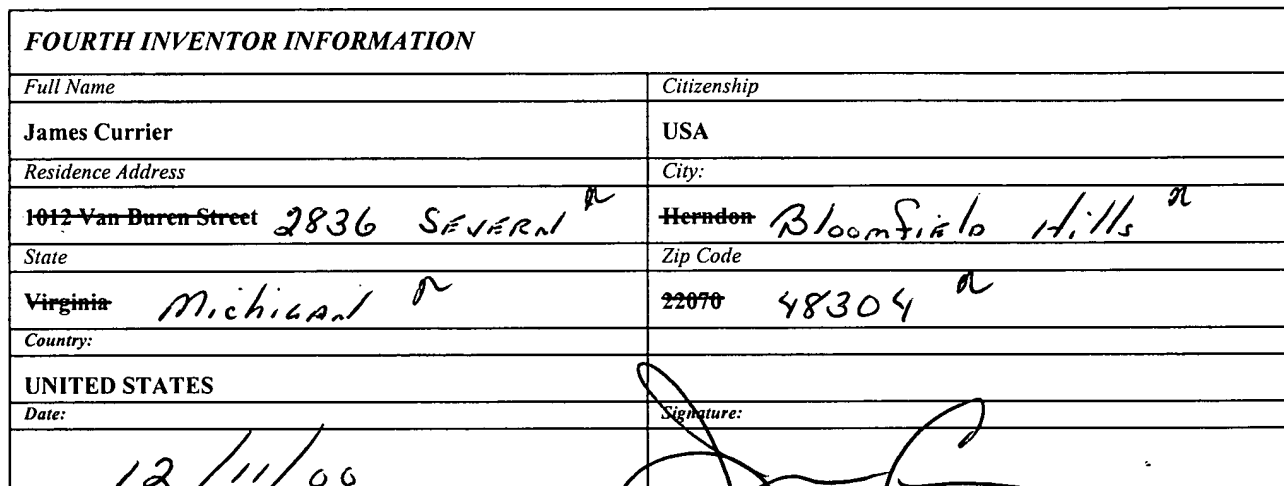 FOURTH INVENTOR INFORMATION
Full Name Citizenship
James Currier USA
Residence Address City:
1012 Van Buren Street 2836 SEVERN Herndon Bloomfield Hills
State Zip Code
Virginia Michigan 22070 48304
Country:
UNITED STATES
Date: Signature:
12/11/00